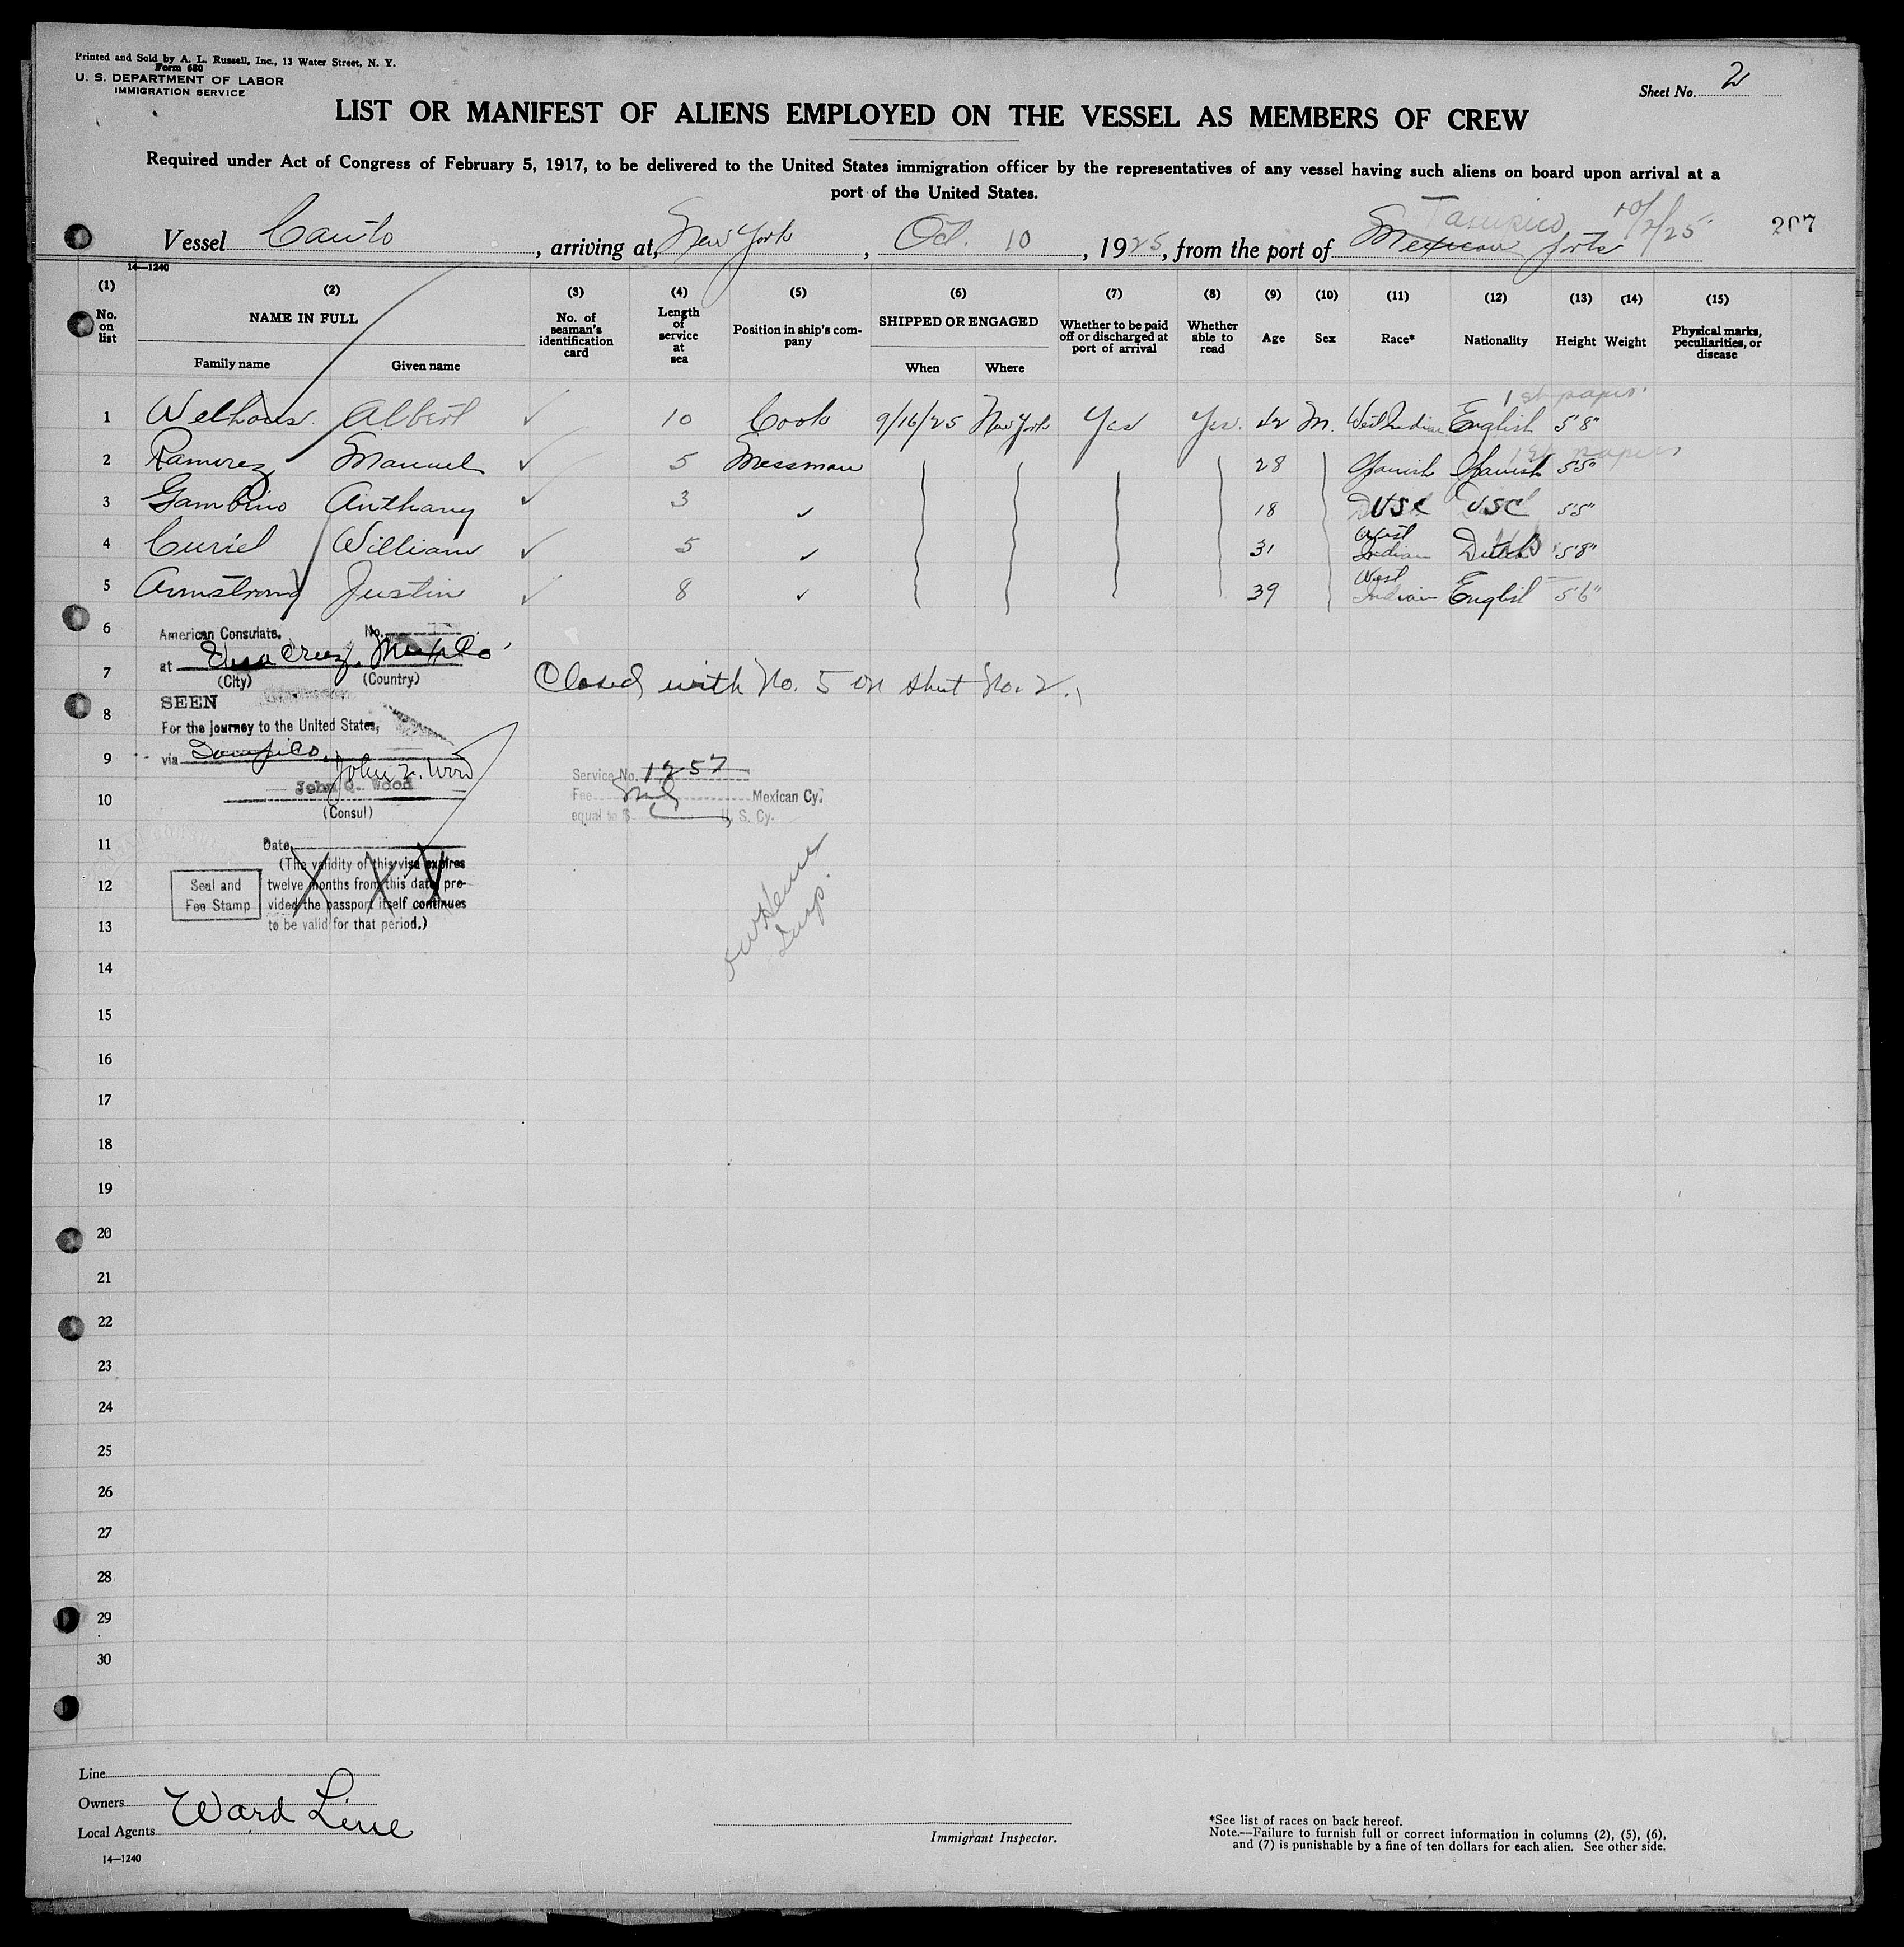 Printed and Sold by A. L. Russell, Inc., 13 Water Street, N. Y.
Form 680
U. S. DEPARTMENT OF LABOR
IMMIGRATION SERVICE
Sheet No. 2
LIST OR MANIFEST OF ALIENS EMPLOYED ON THE VESSEL AS MEMBERS OF CREW
Required under Act of Congress of February 5, 1917, to be delivered to the United States immigration officer by the representatives of any vessel having such aliens on board upon arrival at a
port of the United States.
Tampico 10/2/25
207
Vessel Cauto, arriving at, New York, Oct. 10, 1925, from the port of Mexican ports
14—1240
(1) (2) (3) (4) (5) (6) (7) (8) (9) (10) (11) (12) (13) (14) (15)
No. on list
NAME IN FULL
Family name Given name
No. of seaman's identification card
Length of service at sea
Position in ship's company
SHIPPED OR ENGAGED
When Where
Whether to be paid off or discharged at port of arrival
Whether able to read
Age Sex Race* Nationality Height Weight
Physical marks, peculiarities, or disease
1st paper
1 Albert 10 Cook 9/16/25 New York Yes Yes. 42 M. West Indian English 5'8"
1st papers
2 Ramirez Manuel 5 Messman 28 Spanish Spanish 5'5"
3 Gambino Anthony 3 18 USC USC 5'5"
4 Curiel William 5 31 West Indian Dutch 5'8"
5 Armstrong Justin 8 39 West Indian English 5'6"
6
American Consulate, No.
at Vera Cruz, Mexico
(City) (Country)
7 Closed with No. 5 on sheet No. 2.
SEEN
8
For the journey to the United States,
9
via Tampico
John Q. Wood
John Q. Wood
10
(Consul)
Service No. 1257
Fee Mexican Cy.
equal to $ U. S. Cy.
11
Date
(The validity of this visa expires
12 twelve months from this date, pro-
vided the passport itself continues
13 to be valid for that period.)
Seal and
Fee Stamp
Insp.
14
15
16
17
18
19
20
21
22
23
24
25
26
27
28
29
30
Line
Owners
Ward Line
Local Agents
14—1240
Immigrant Inspector.
*See list of races on back hereof.
Note.—Failure to furnish full or correct information in columns (2), (5), (6),
and (7) is punishable by a fine of ten dollars for each alien. See other side.